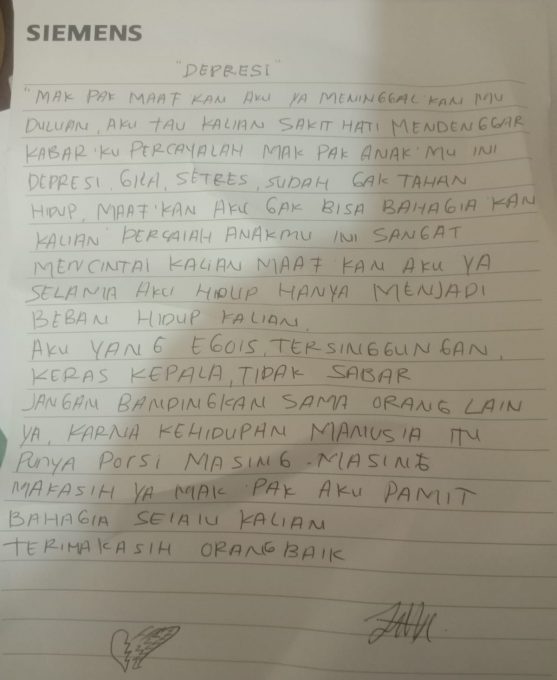 SIEMENS
"DEPRESI"
"MAK PAK MAAF KAN AKU YA MENINGGAL KAN MU
DULUAN, AKU TAU KALIAN SAKIT HATI MENDENGGAR
KABAR KU PERCAYALAH MAK PAK ANAK MU INI
DEPRESI, GILA, SETRES, SUDAH GAK TAHAN
HIDUP, MAAF KAN AKU GAK BISA BAHAGIA KAN
KALIAN PERCAIAH ANAKMU INI SANGAT
MENCINTAI KALIAN MAAF KAN AKU YA
SELAMA AKU HIDUP HANYA MENJADI
BEBAN HIDUP KALIAN,
AKU YANG EGOIS, TERSINGGUNGAN,
KERAS KEPALA, TIDAK SABAR
JANGAN BANDINGKAN SAMA ORANG LAIN
YA, KARNA KEHIDUPAN MANUSIA ITU
PUNYA PORSI MASING-MASING
MAKASIH YA MAK PAK AKU PAMIT
BAHAGIA SELALU KALIAN
TERIMAKASIH ORANG BAIK